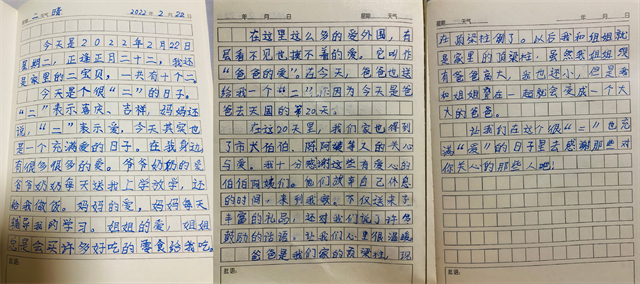 二 晴 2022年 2月 22日
今天是2022年2月22日
星期二,正逢正月二十二,我还
是家里的二宝贝,一共有十个二
今天是个很“二”的日子。
“二”表示喜庆、吉祥,妈妈还
说,“二”表示爱,今天其实也
是一个充满爱的日子。在我身边,
有很多很多的爱。爷爷奶奶的爱
爷爷奶奶每天送我上学放学,还
给我做饭。妈妈的爱,妈妈每天
辅导我的学习。姐姐的爱,姐姐
总是会买许多好吃的零食给我吃。
批语:
年 月 日 星期 天气
在这里这么多的爱外围,有
层看不见也摸不着的爱。它叫作
“爸爸的爱”。在今天,爸爸也送
给我一个“二”,因为今天是爸
爸去天国的第20天。
在这20天里,我们家也得到
了市大伯伯、阿阿姨等人的关心
与爱。我十分感谢这些有爱心的
伯伯阿姨们。他们放弃自己休息
的时间,来到我家。不仅送来了
丰富的礼品,还对我们说了许多
鼓励的话语,让我们心里很温暖。
爸爸是我们家的顶梁柱,现
批语:
年 月 日 星期 天气
在顶梁柱倒了。以后我和姐姐就
是家里的顶梁柱,虽然我姐姐没
有爸爸高大,我也还小,但是我
和姐姐望在一起就会变成一个大
大的爸爸。
让我们在这个很“二”也充
满“爱”的日子里去感谢那些对
你关心的那些人吧!
批语: